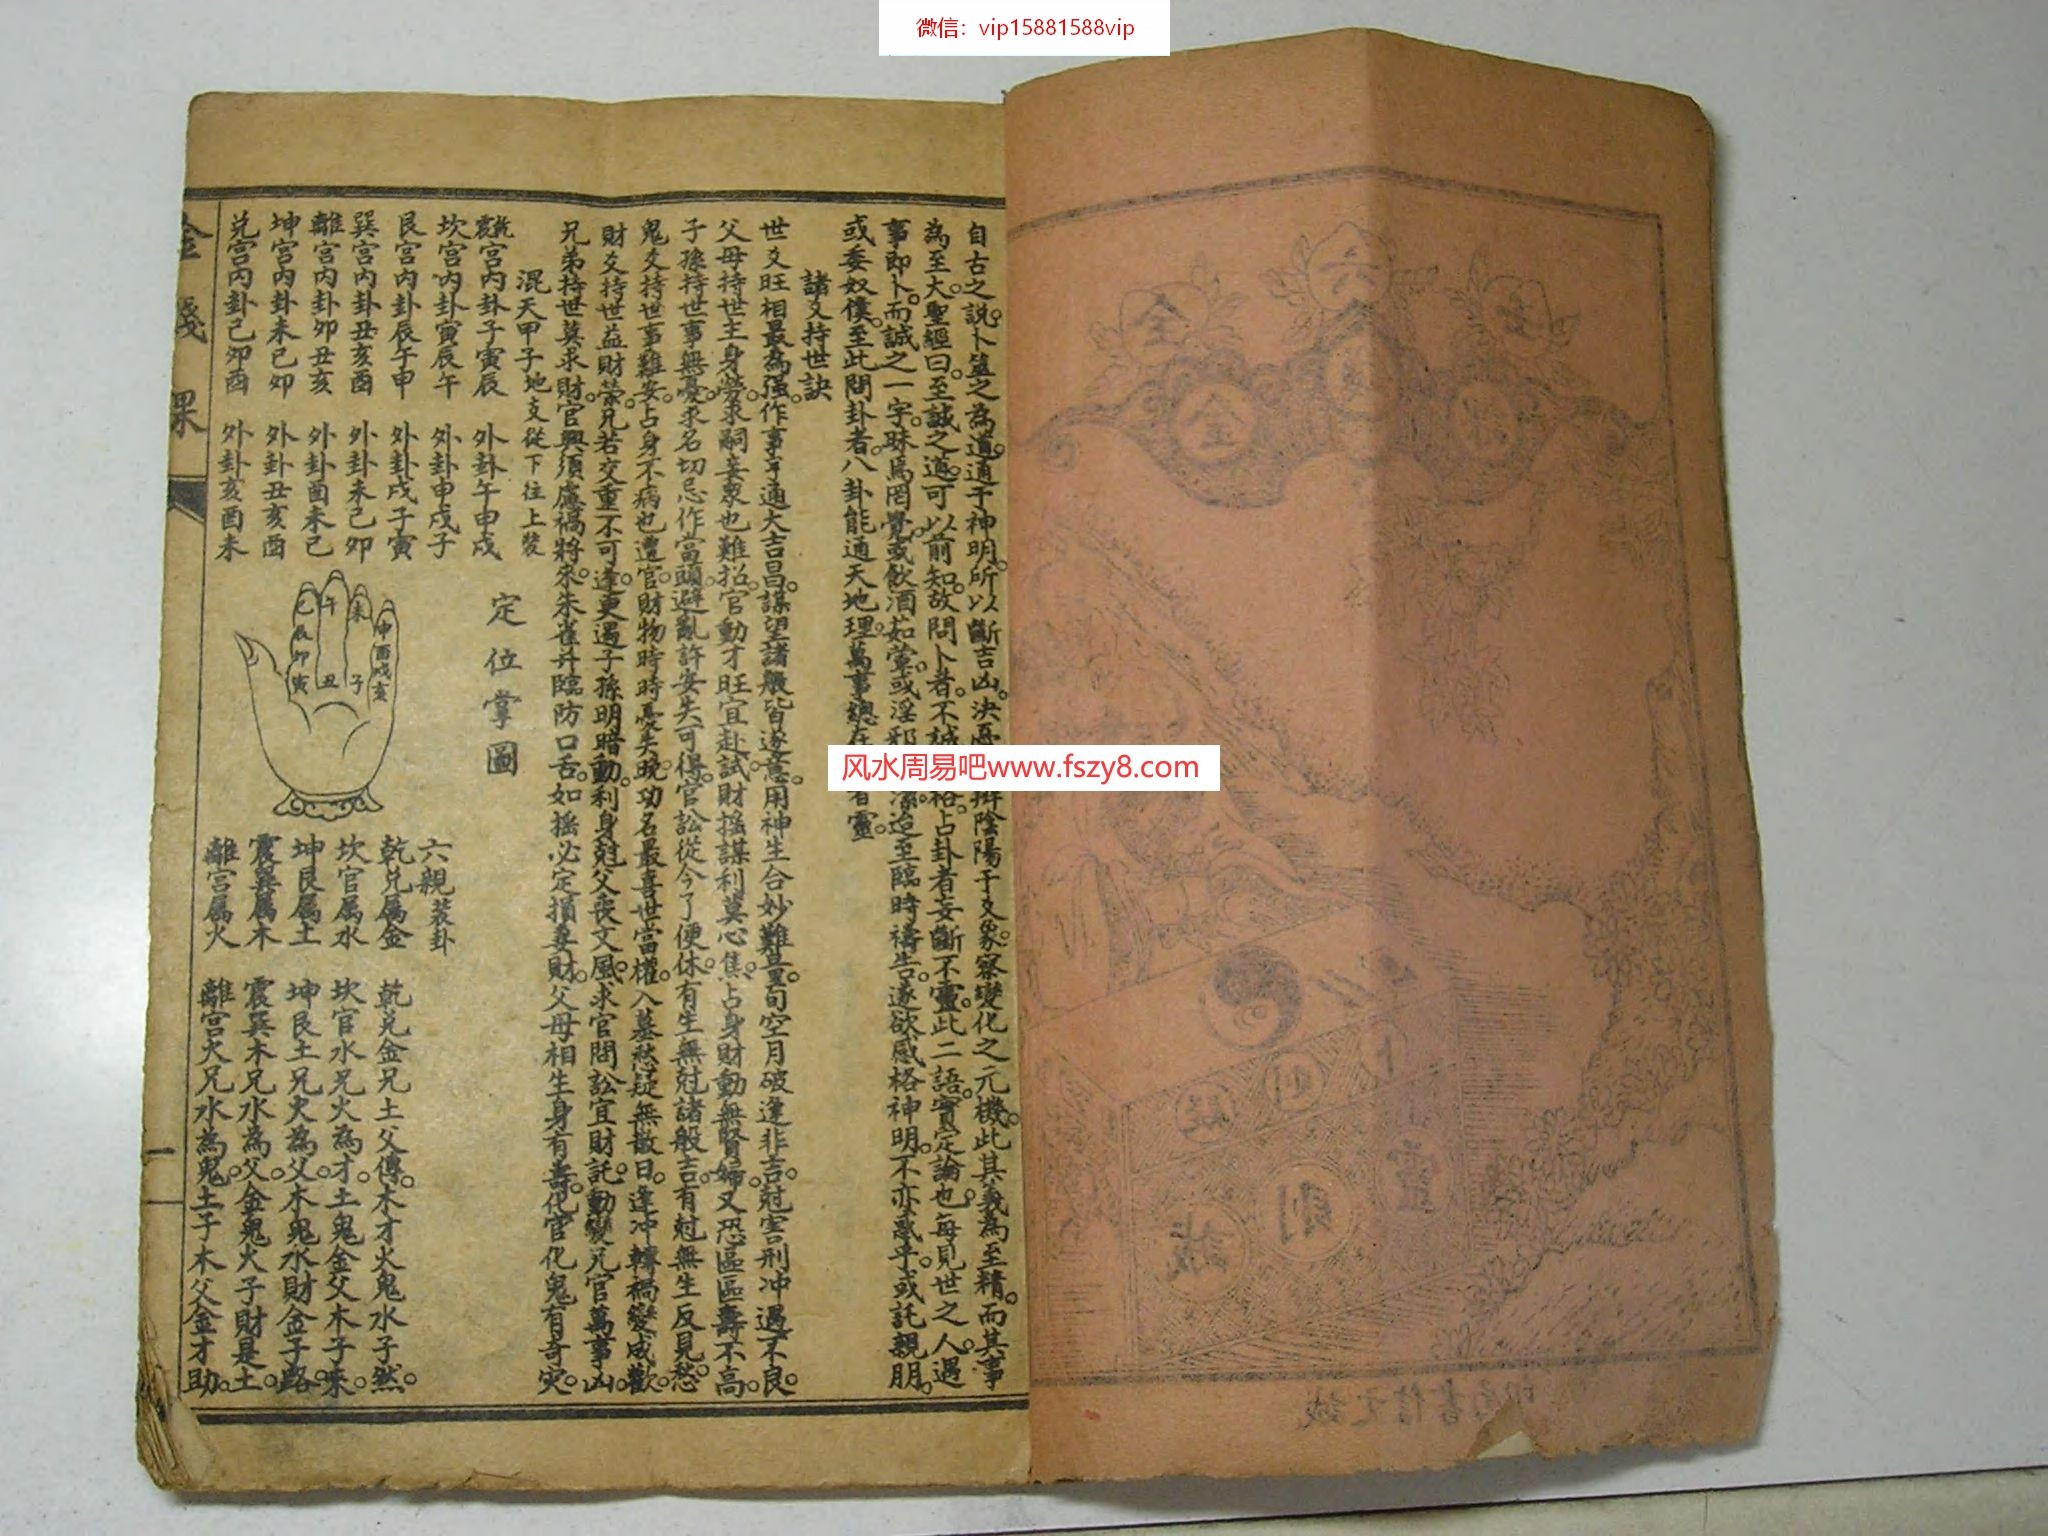 微信：vip15881588vip
自古之説。卜筮之為道。通于神明。所以斷吉凶。決憂 辯陰陽于爻象。察變化之元機。此其義為至精。而其事
為至大。聖經曰。至誠之道。可以前知。故問卜者。不誠 格。占卦者妄斷不靈。此二語。實定論也。每見世之人。遇
事即卜。而誠之一字。昧焉罔覺。或飲酒茹葷。或淫邪 潔。迨至臨時禱告。遂欲感格神明。不亦惑乎。或託親朋。
或委奴僕。至此問卦者。八卦能通天地理。萬事總在 者靈。
諸爻持世訣
世爻旺相最為强。作事亨通大吉昌。謀望諸般皆遂意。用神生合妙難量。旬空月破逢非吉。尅害刑冲遇不良。
父母持世主身勞。求嗣妾衆也難招。官動才旺宜赴試。財摇謀利莫心焦。占身財動無賢婦。又恐區區壽不高。
子孫持世事無憂。求名切忌作當頭。避亂許安失可得。官訟從今了便休。有生無尅諸般吉。有尅無生反見愁。
鬼爻持世事難安。占身不病也遭官。財物時時憂失晩。功名最喜世當權。入墓愁疑無散日。逢冲轉禍變成歡。
財爻持世益財榮。兄若交重不可逢。更遇子孫明暗動。利身尅父喪文風。求官問訟宜財託。動變兄官萬事凶。
兄弟持世莫求財。官興須慮禍將來。朱雀并臨防口舌。如摇必定損妻財。父母相生身有壽。化官化鬼有奇灾。
混天甲子地支從下往上裝
乾震宫内卦子寅辰 外卦午申戌
坎宫内卦寅辰午 外卦申戌子
艮宫内卦辰午申 外卦戌子寅
巽宫内卦丑亥酉 外卦未己卯
離宫内卦卯丑亥 外卦酉未己
坤宫内卦未已卯 外卦丑亥酉
兑宫内卦已卯丑 外卦亥酉未
定位掌圖
巳 午 未 申
辰 酉
卯 戌
寅 丑 子 亥
六親裝卦
乾兑属金 乾兑金兄土父傳。木才火鬼水子然。
坎官属水 坎官水兄火為才。土鬼金父木子來。
坤艮属土 坤艮土兄火為父。木鬼水財金子路。
震巽属木 震巽木兄水為父。金鬼火子財是土。
離宫属火 離宫火兄水為鬼。土子木父金才助。
金錢課
一
风水周易吧www.fszy8.com
全
六
課
全
靈
則
誠
誠文信書局印